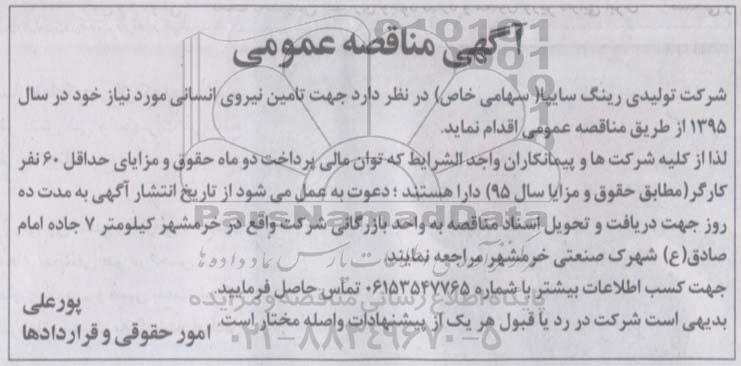 آگهی مناقصه عمومی
شرکت تولیدی رینگ سایپا( سهامی خاص) در نظر دارد جهت تامین نیروی انسانی مورد نیاز خود در سال
۱۳۹۵ از طریق مناقصه عمومی اقدام نماید.
لذا از کلیه شرکت ها و پیمانکاران واجد الشرایط که توان مالی پرداخت دو ماه حقوق و مزایای حداقل ۶۰ نفر
کارگر(مطابق حقوق و مزایا سال ۹۵) دارا هستند ؛ دعوت به عمل می شود از تاریخ انتشار آگهی به مدت ده
روز جهت دریافت و تحویل اسناد مناقصه به واحد بازرگانی شرکت واقع در خرمشهر کیلومتر ۷ جاده امام
صادق(ع) شهرک صنعتی خرمشهر مراجعه نمایند.
جهت کسب اطلاعات بیشتر با شماره ۰۶۱۵۳۵۴۷۷۶۵ تماس حاصل فرمایید.
بدیهی است شرکت در رد یا قبول هر یک از پیشنهادات واصله مختار است.
پورعلی
امور حقوقی و قراردادها
ParsNamadData
پایگاه اطلاع رسانی مناقصه و مزایده
۰۲۱-۸۸۳۴۹۶۷۰-۵